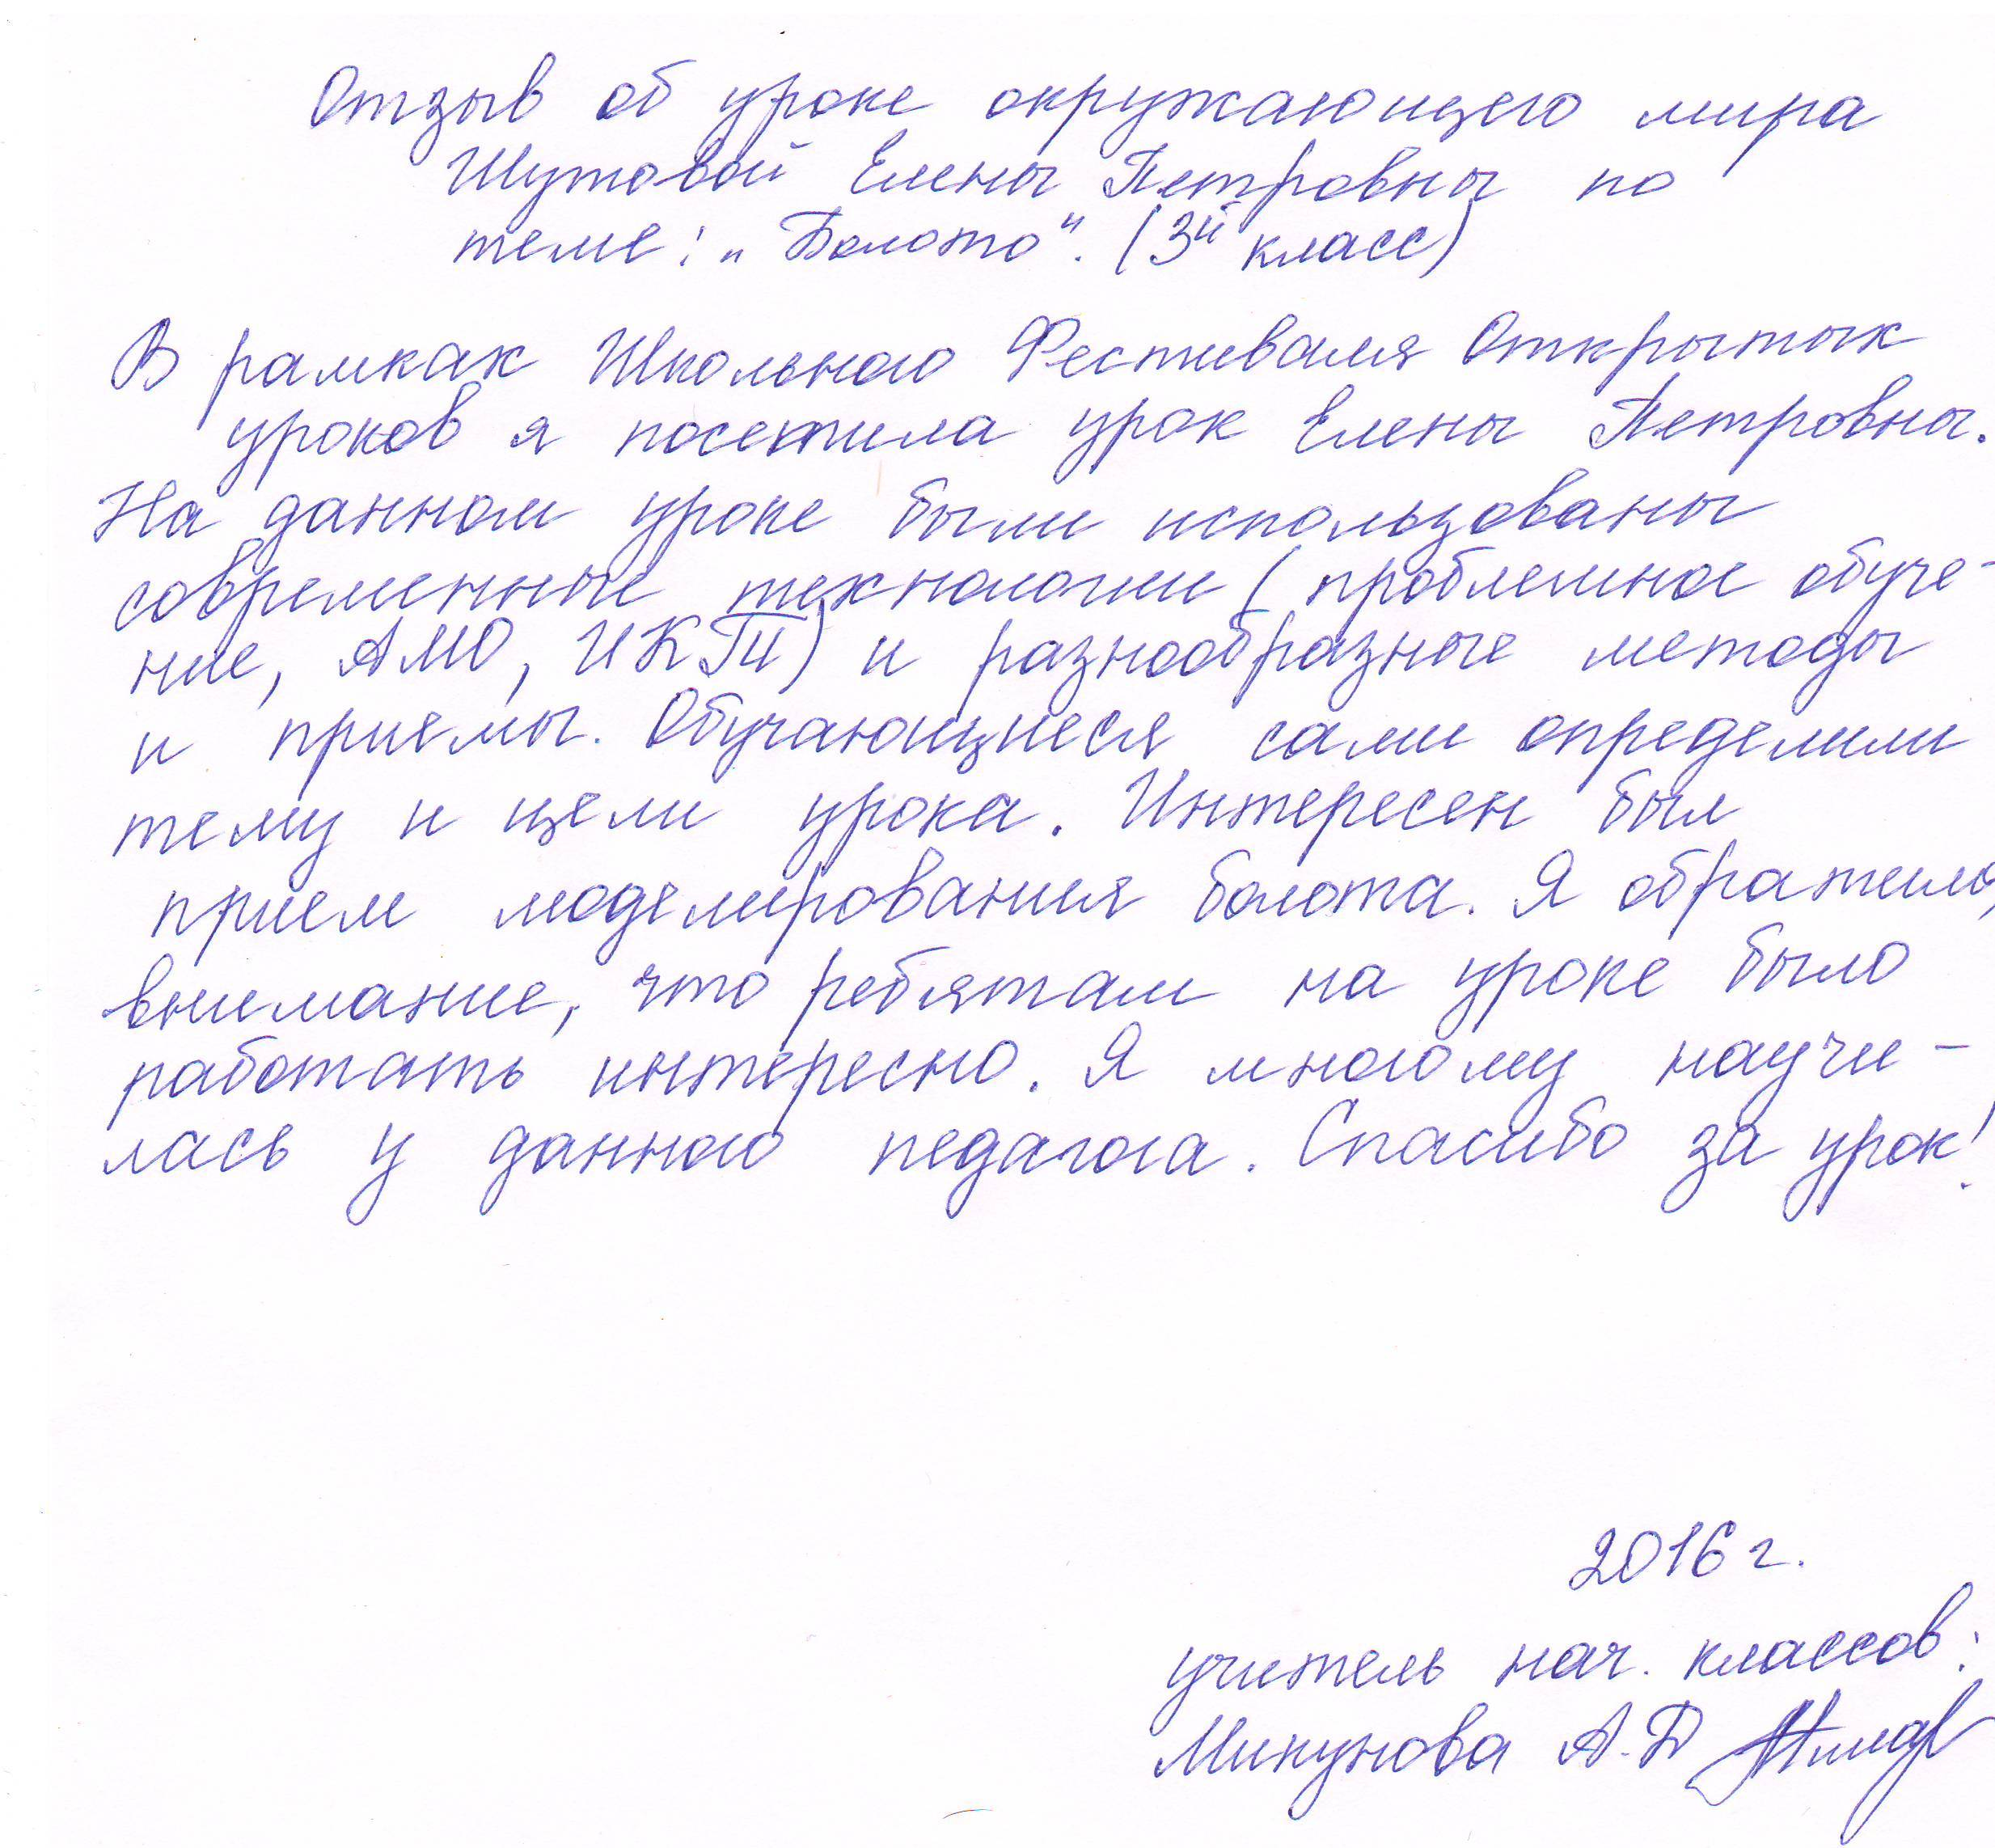 Отзыв об уроке окружающего мира
Шутовой Елены Петровны по
теме: „Болото". (3й класс)
В рамках Школьного Фестиваля Открытых
уроков я посетила урок Елены Петровны.
На данном уроке были использованы
современные технологии (проблемное обуче-
ние, АМО, ИКТ) и разнообразные методы
и приемы. Обучающиеся сами определили
тему и цели урока. Интересен был
прием моделирования болота. Я обратила
внимание, что ребятам на уроке было
работать интересно. Я многому научи-
лась у данного педагога. Спасибо за урок!
2016 г.
учитель нач. классов:
Микунова А.Д